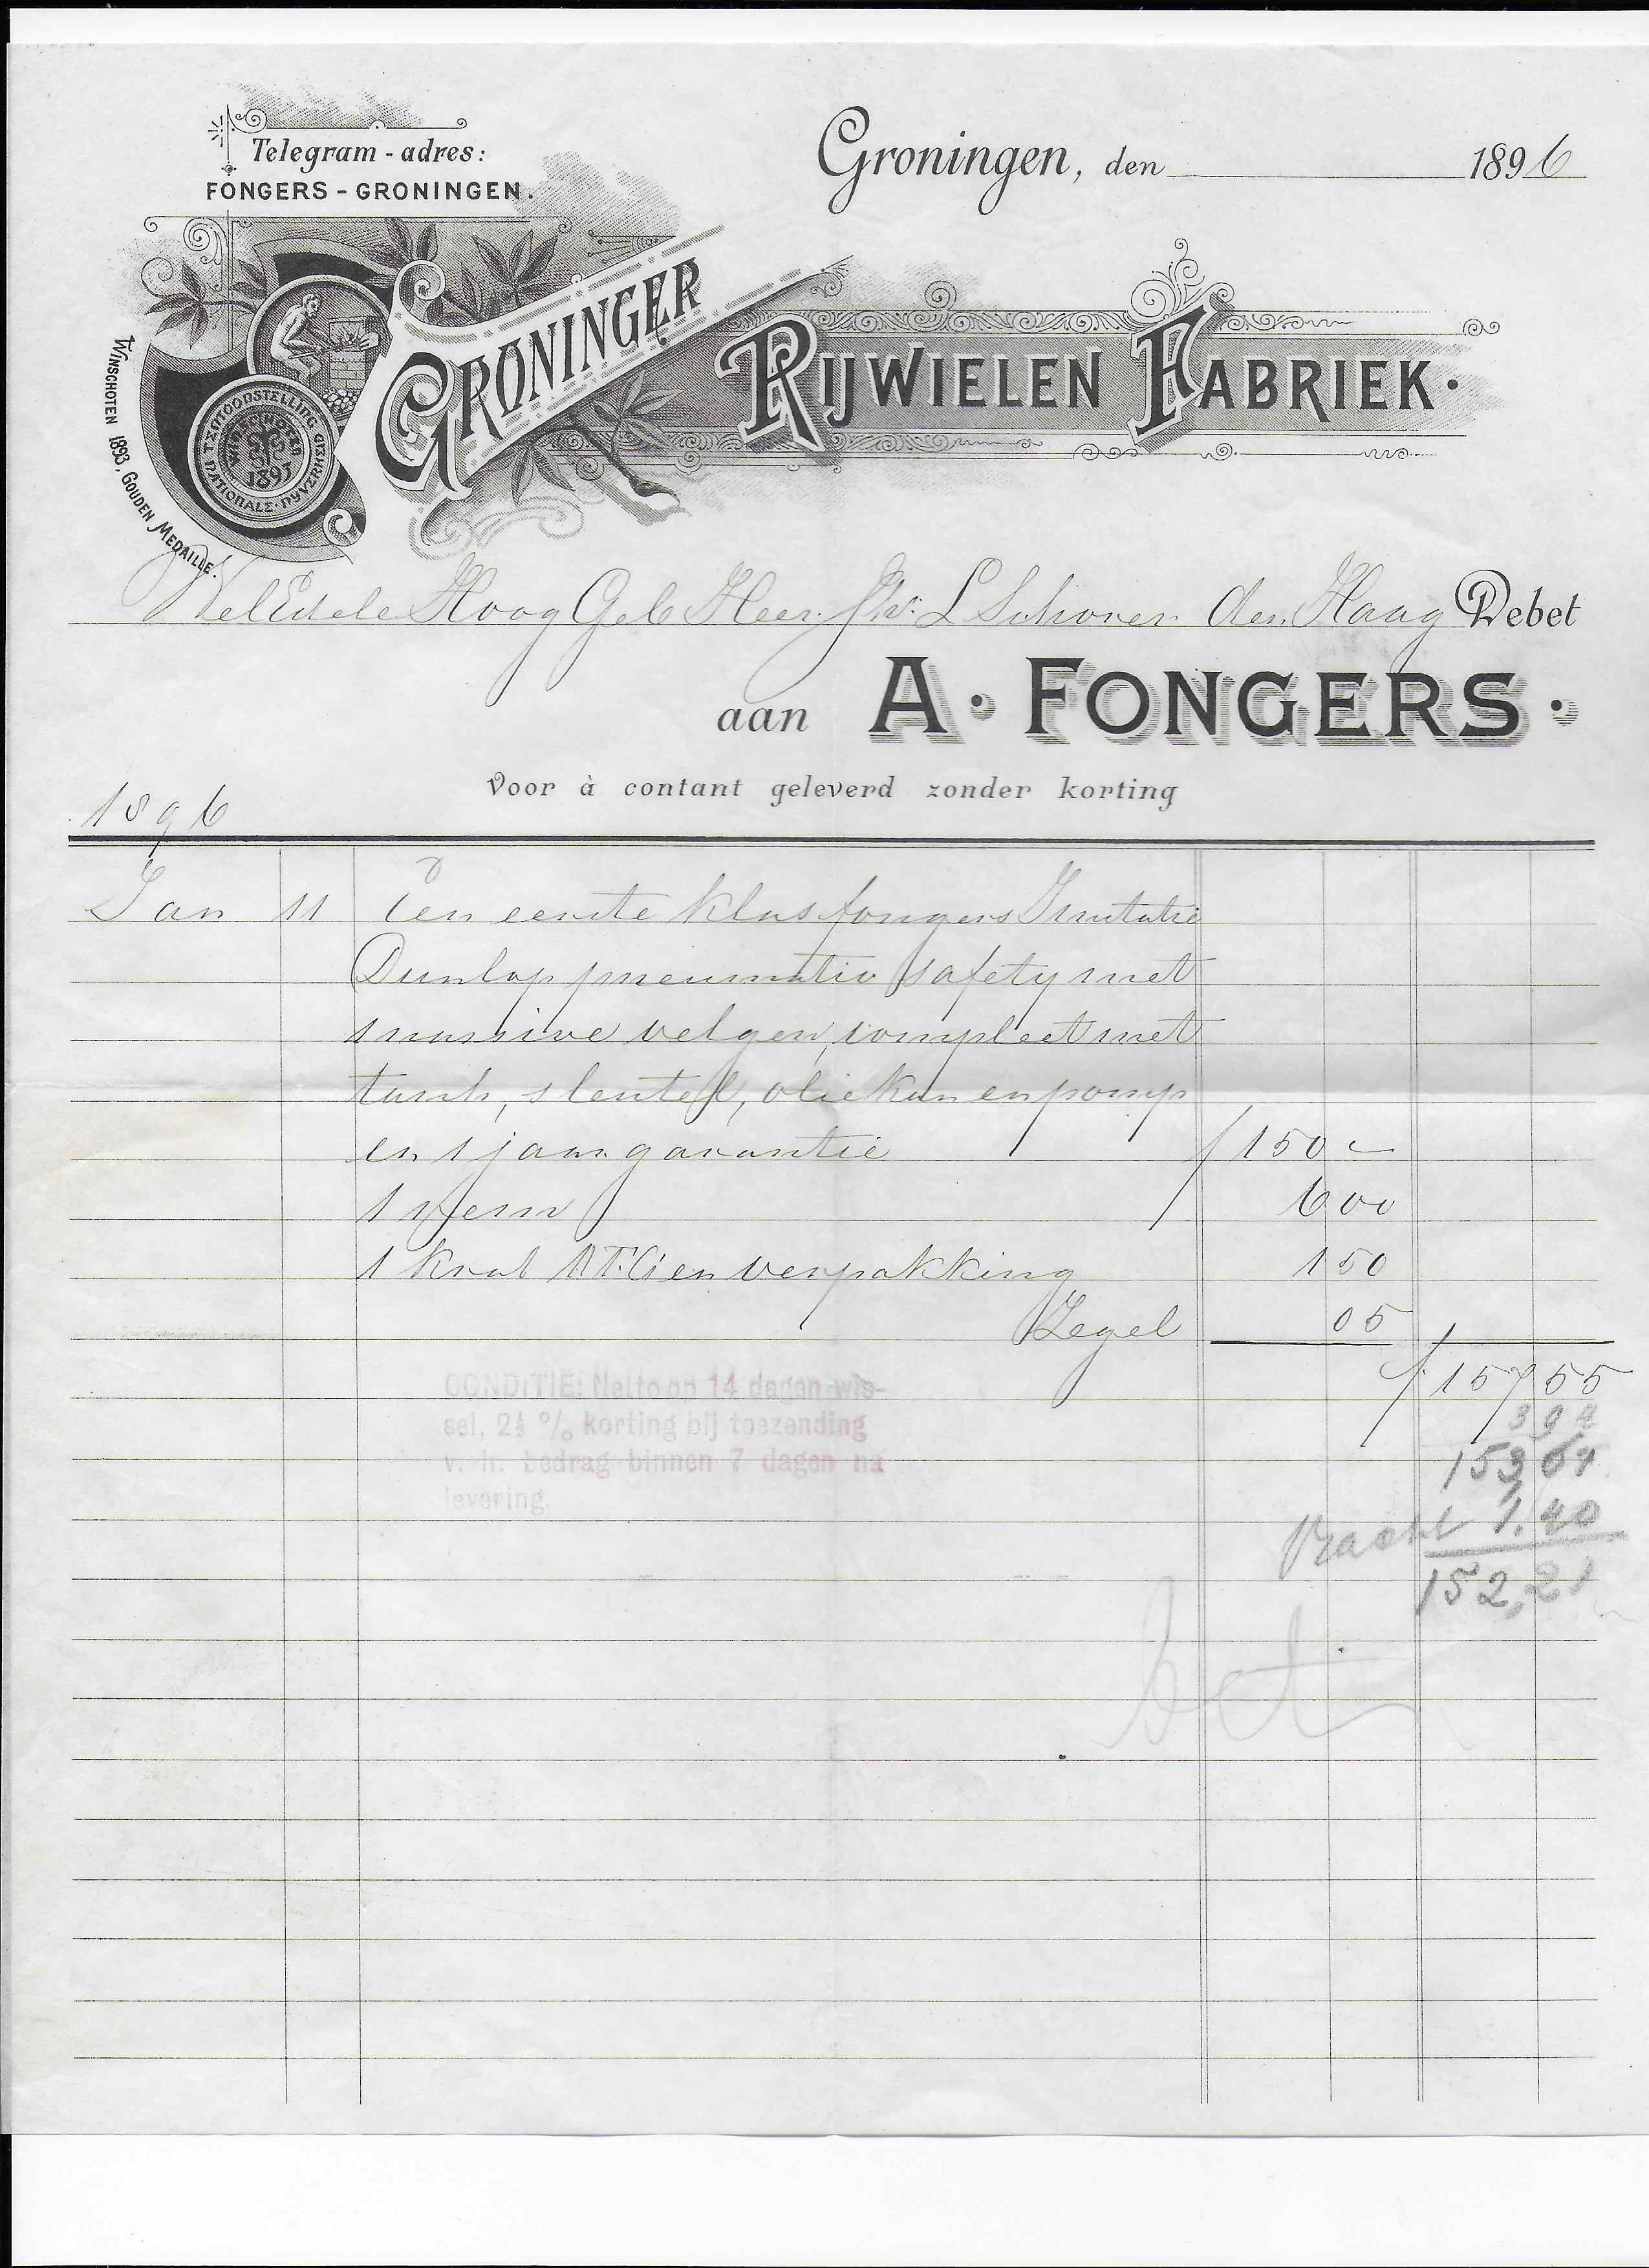 Telegram - adres:
FONGERS - GRONINGEN.
Groningen, den 1896
GRONINGER RIJWIELEN FABRIEK.
NATIONALE NYVERHEID TENTOONSTELLING
WINSCHOTEN
1893
WINSCHOTEN 1893, GOUDEN MEDAILLE.
WelEdele Hoog Geb Heer Jhr: L Schorer den Haag Debet
aan A. FONGERS.
Voor à contant geleverd zonder korting
1896
Jan 11 Één eerste klas fongers Imitatie
Dunlop pneumatic safety met
massive velgen, compleet met
tasch, sleutel, oliekan en pomp
en 1 jaar garantie f 150 -
1 rem 6 00
1 krat en verpakking 1 50
Zegel 05
f 157 55
3 94
153 61
Vracht 1.40
152,21
CONDITIE: Netto op 14 dagen wis-
sel, 2½ % korting bij toezending
v. h. bedrag binnen 7 dagen na
levering.
bet